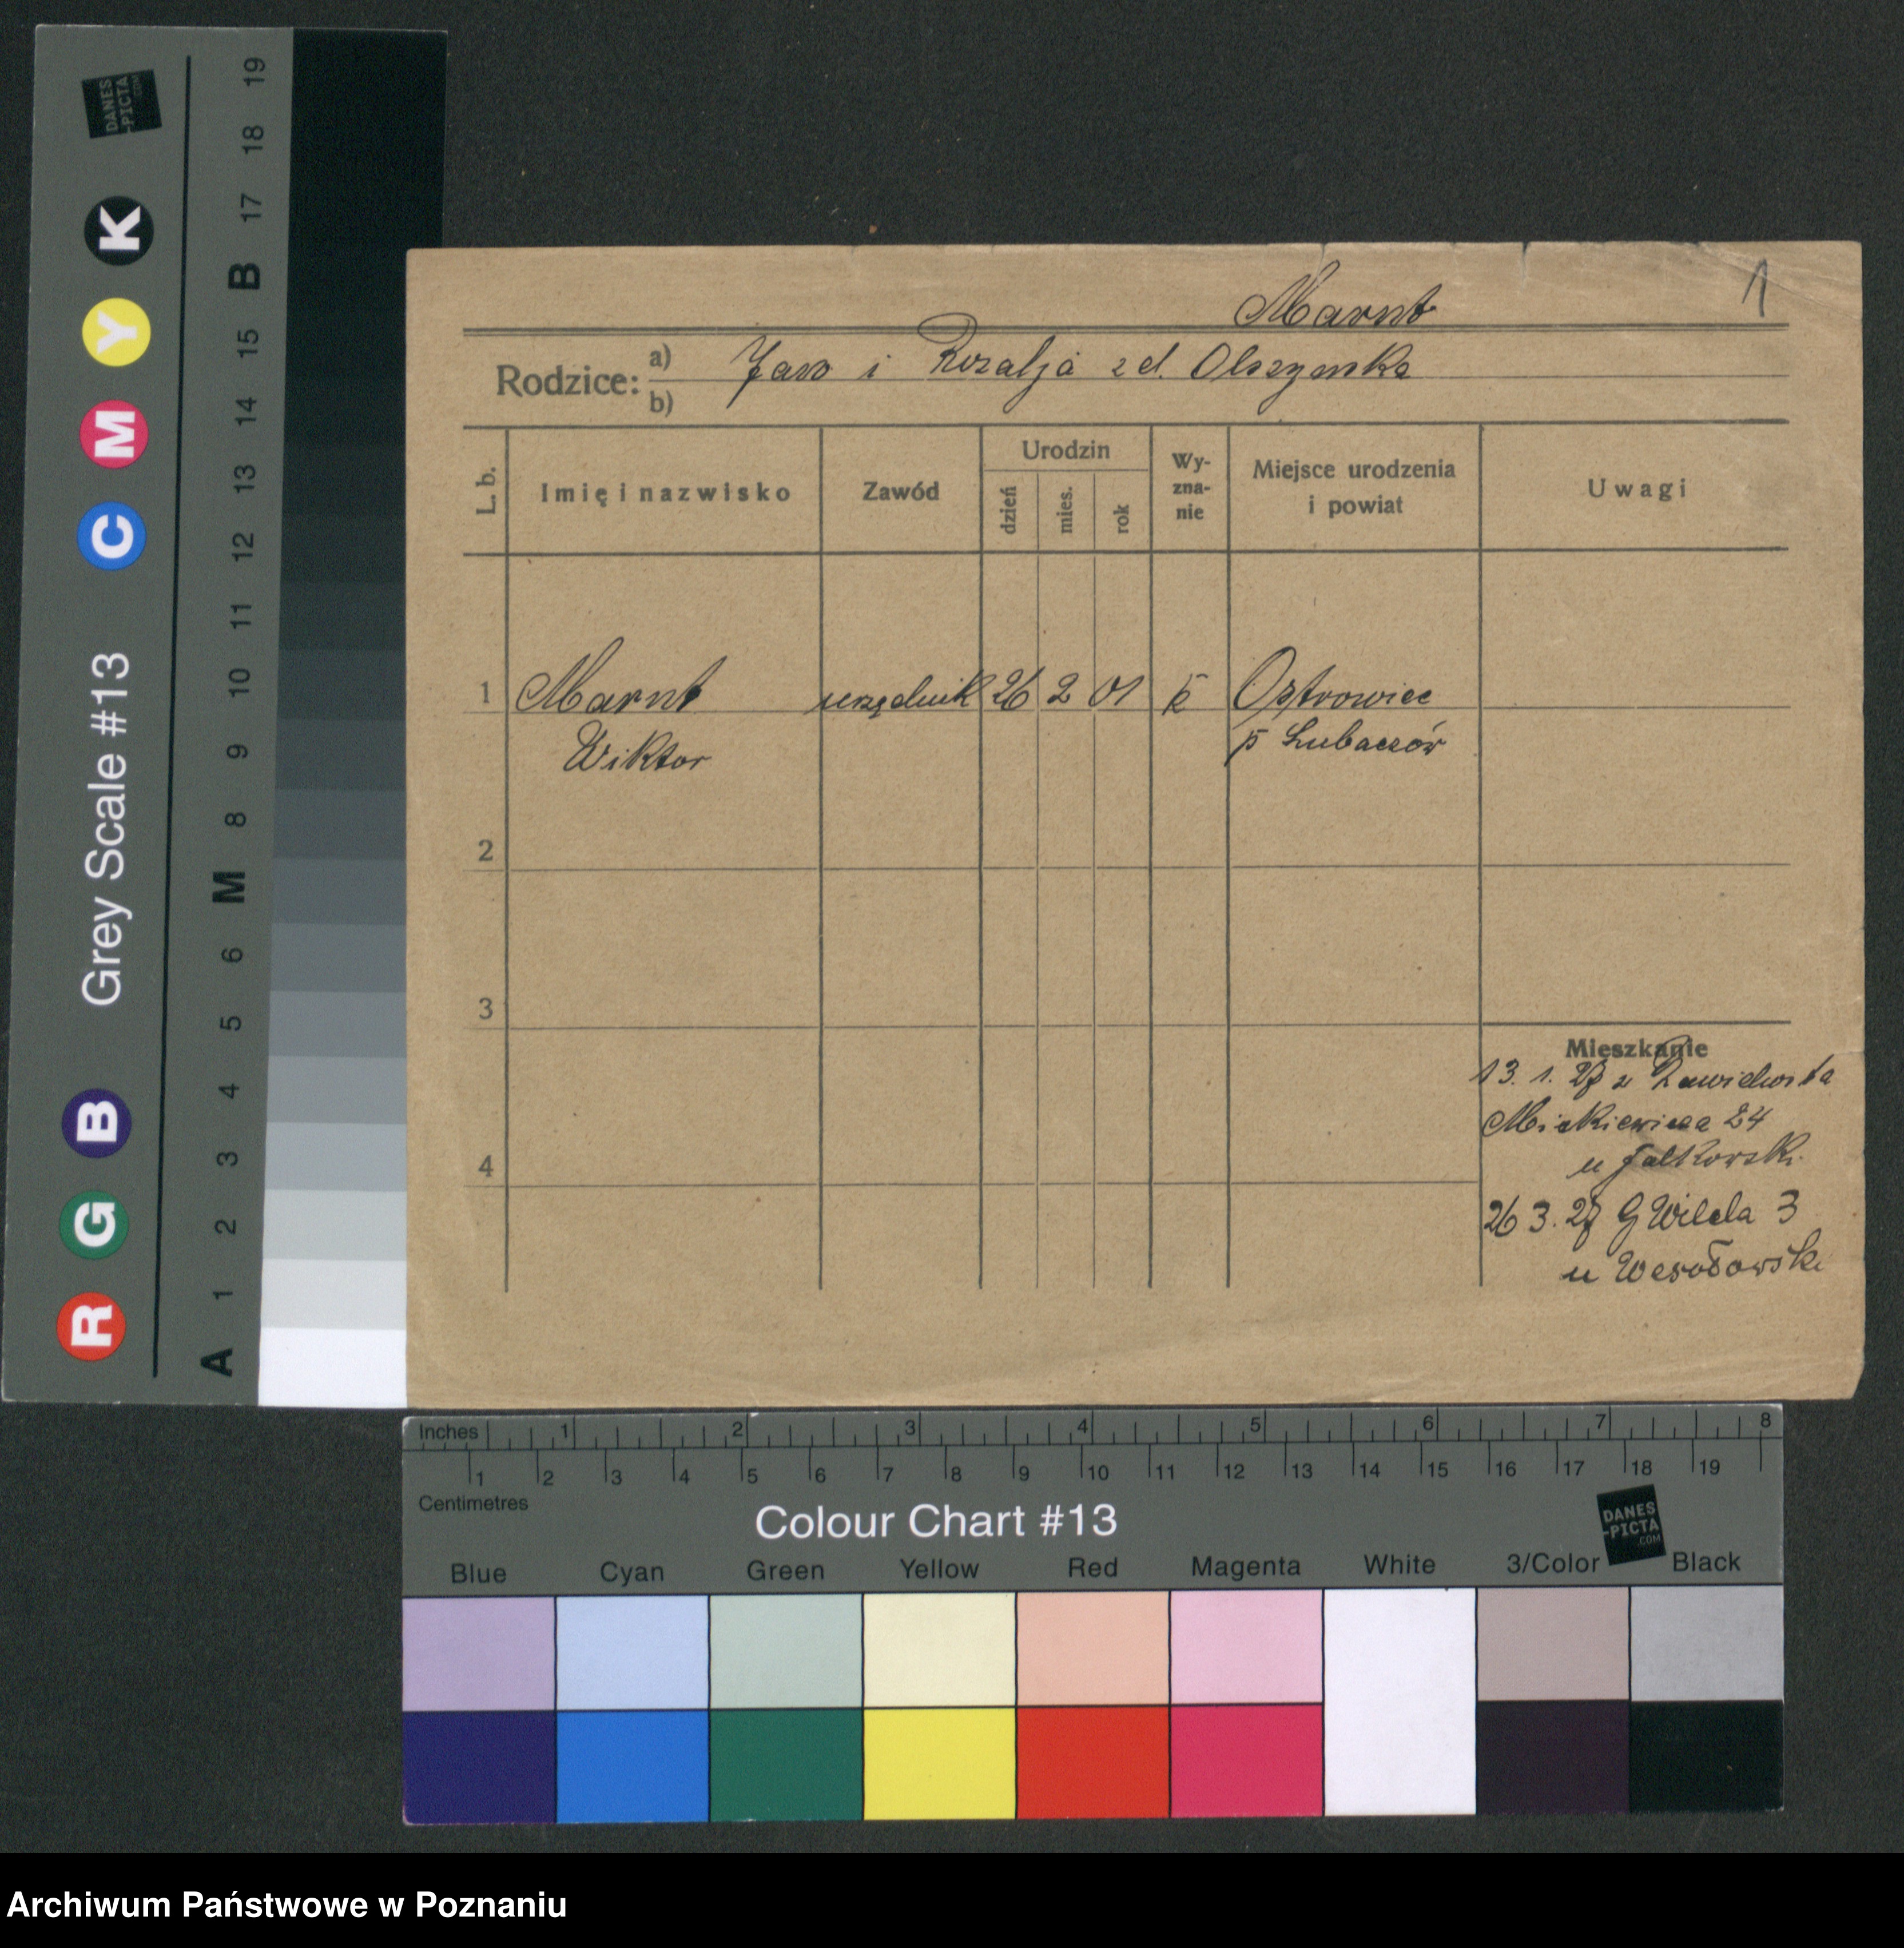 DANES
-PICTA
.COM
R G B Grey Scale #13 C M Y K
A 1 2 3 4 5 6 M 8 9 10 11 12 13 14 15 B 17 18 19
Marnt
1
Rodzice: a) Jan i Rozalja z d. Olszynska
b)
L. b.
Imię i nazwisko
Zawód
Urodzin
dzień
mies.
rok
Wy-
zna-
nie
Miejsce urodzenia
i powiat
Uwagi
1 Marnt urzędnik 26 2 01 k Ostrowiec
Wiktor p Lubaczów
2
3
4
Mieszkanie
13. 1. 27 z Zawichosta
Mickiewicza 24
u Jalkowski
26 3. 27 G Wilda 3
u Wesołowski
Inches 1 2 3 4 5 6 7 8
1 2 3 4 5 6 7 8 9 10 11 12 13 14 15 16 17 18 19
Centimetres
Colour Chart #13
DANES
-PICTA
.COM
Blue Cyan Green Yellow Red Magenta White 3/Color Black
Archiwum Państwowe w Poznaniu